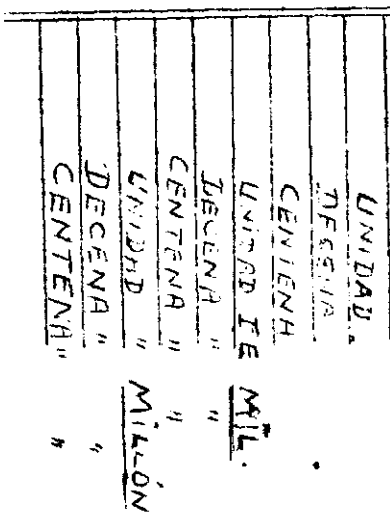 UNIDAD.
DECENA
CENTENA
UNIDAD DE MIL.
DECENA " "
CENTENA " "
UNIDAD " MILLÓN
DECENA " "
CENTENA " "